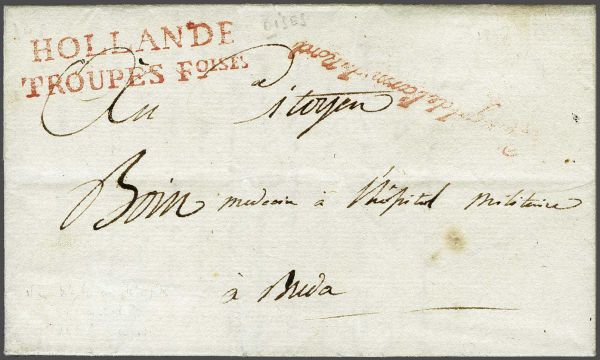 HOLLANDE
TROUPES FOISES
Au Citoyen
Boin medecin à l'hôpital militaire
à Breda